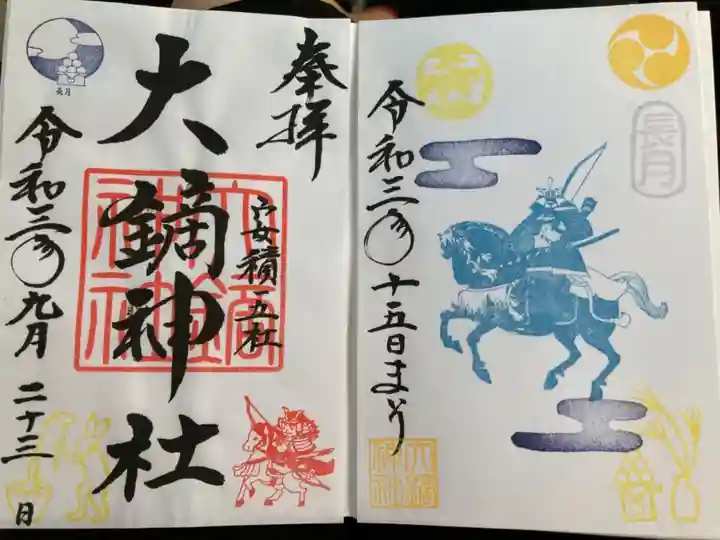 奉拝
安積一五社
大鏑神社
大鏑神社
令和三年九月二十三日
長月
長月
令和三年十五日まいり
大鏑神社